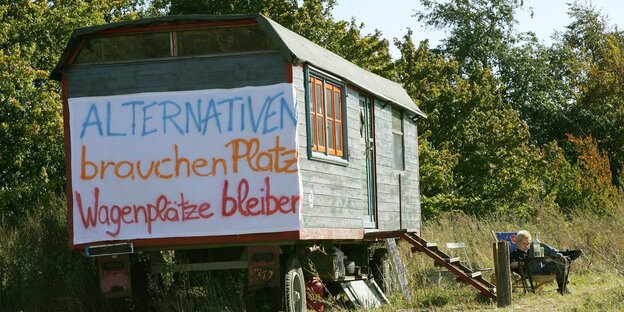 ALTERNATIVEN
brauchen Platz
Wagenplätze bleiben